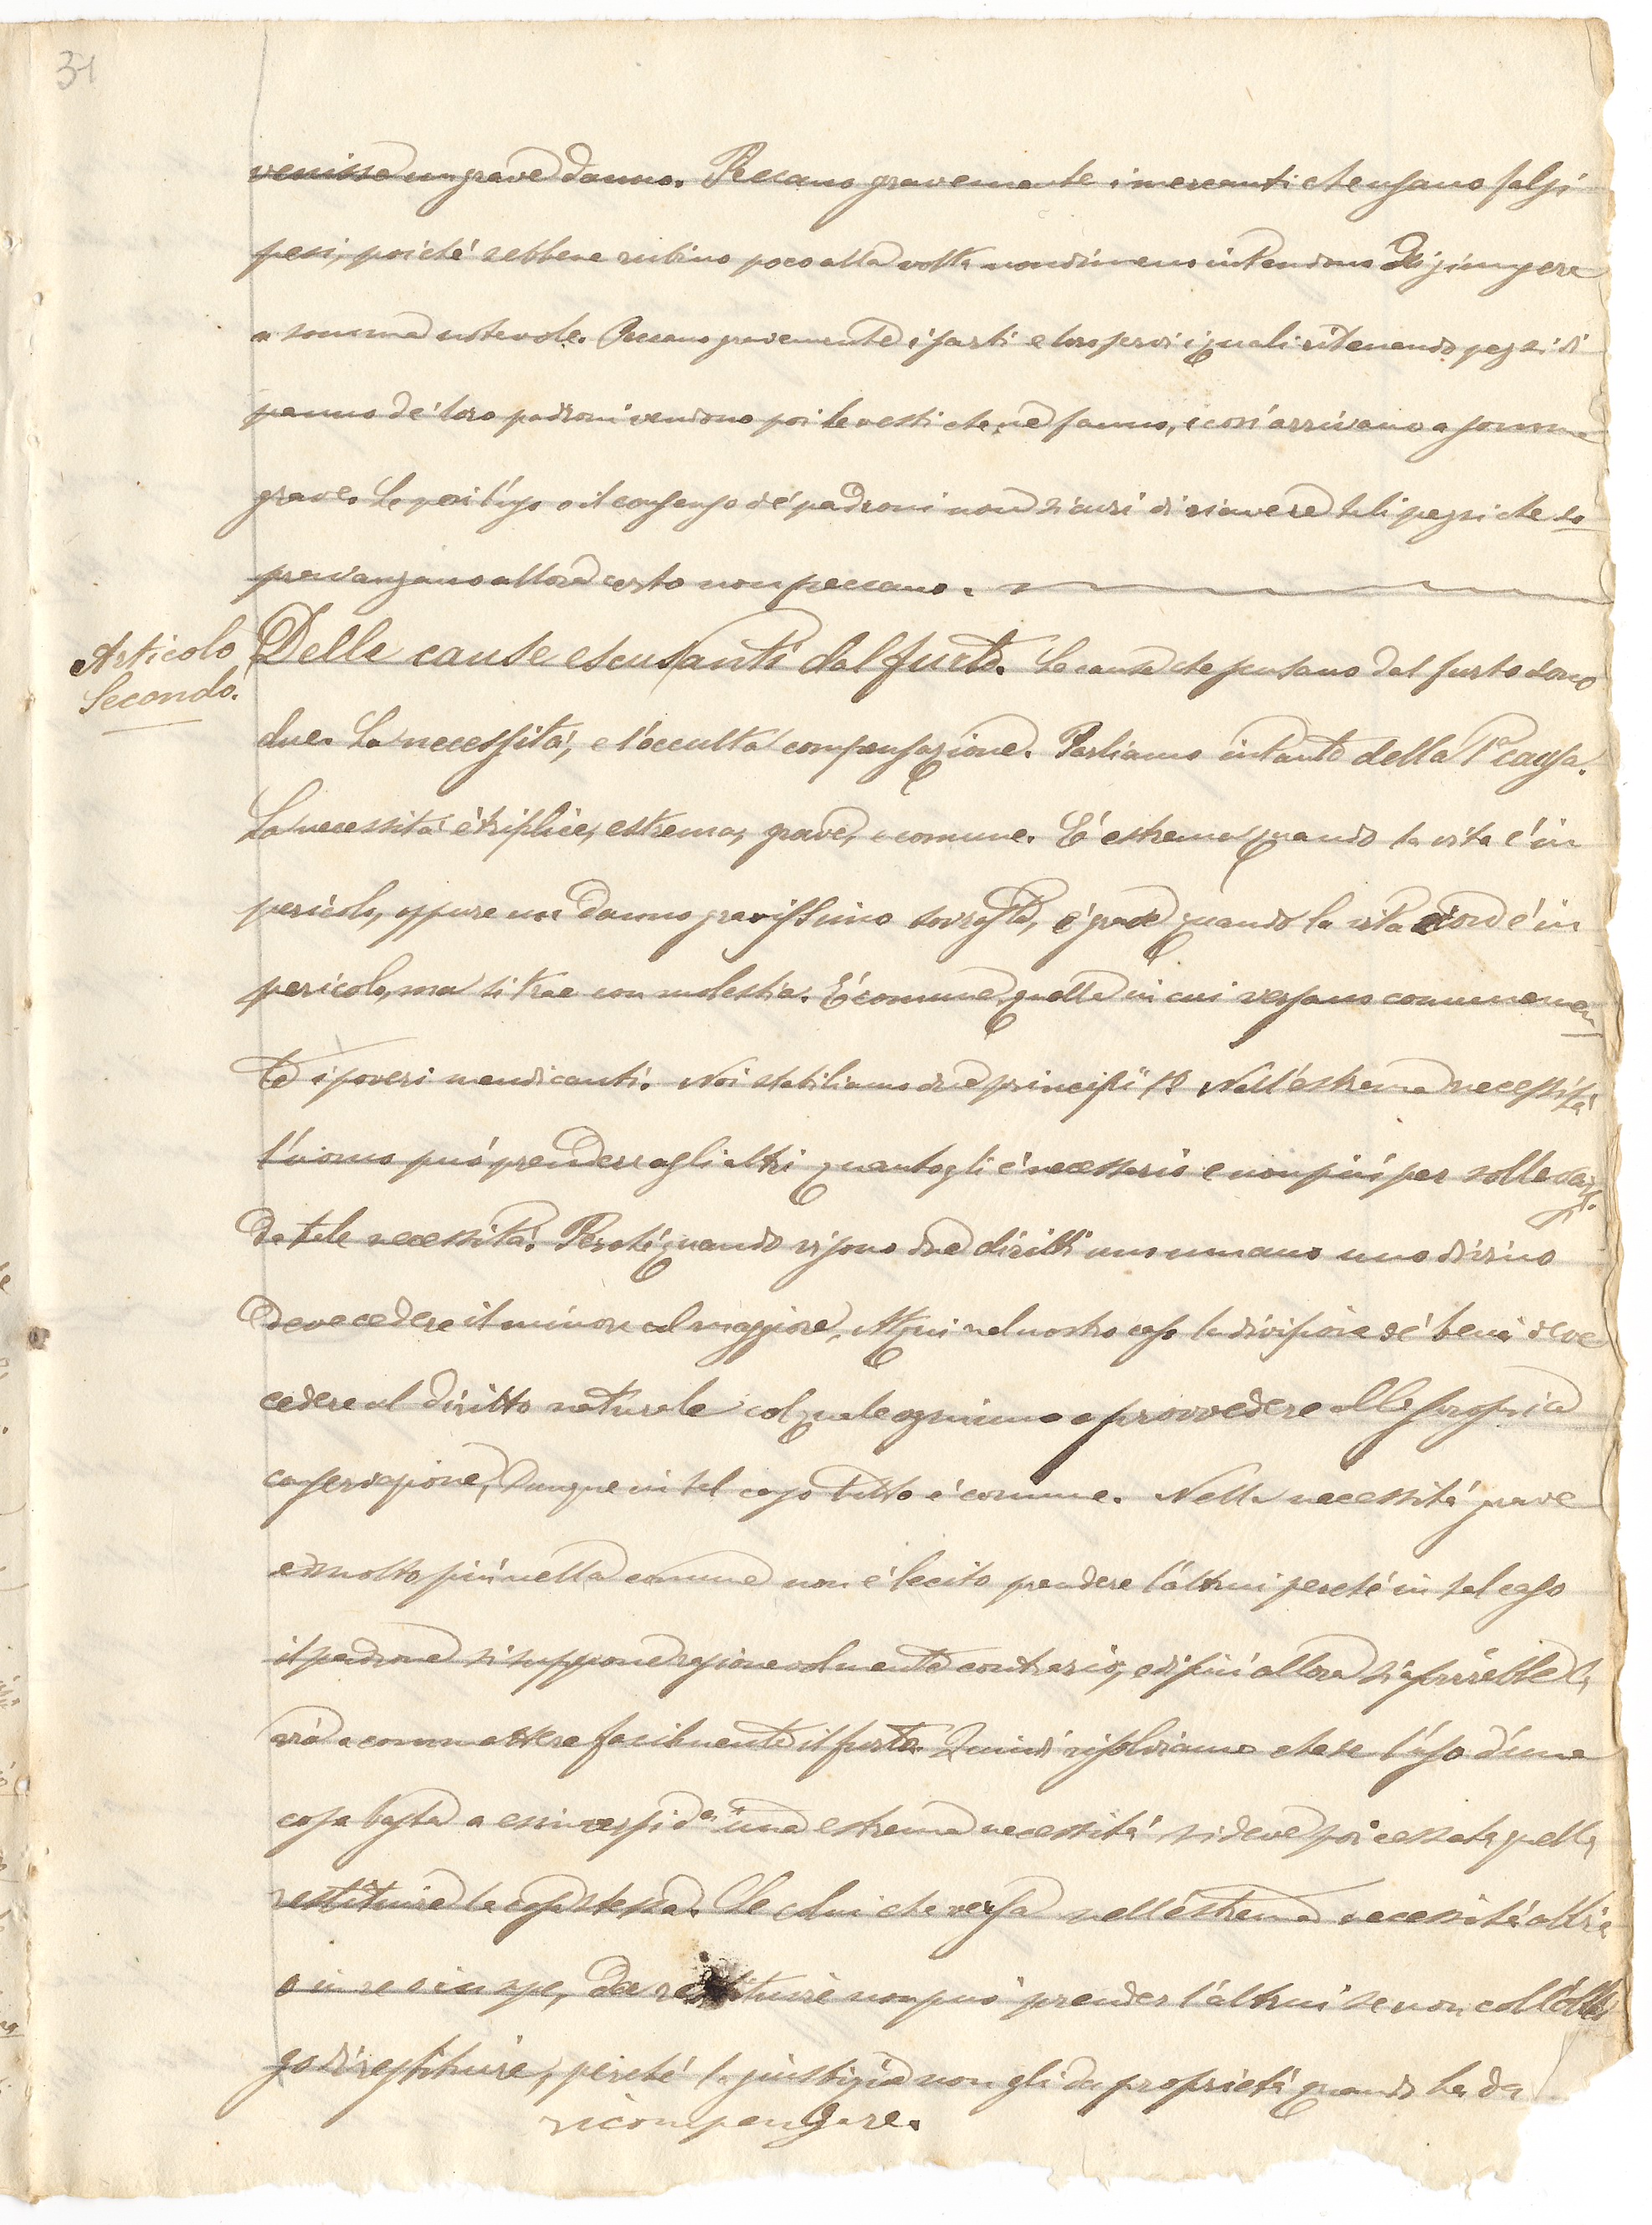 31
venisse un grave danno. Peccano gravemente i mercanti che usano falsi
pesi, poiché sebbene rubino poco alla volta nondimeno intendono di giungere
a somma notevole. Peccano gravemente i sarti e loro servi i quali ritenendo pezzi di
panno de' loro padroni vendono poi le vesti che ne fanno, e così arrivano a somma
grave. Se poi l'uso o il consenso de' padroni non si curi di riavere tali pezzi che so
pravanzano allora certo non peccano.
Articolo
Secondo.
Delle cause escusanti dal furto. Le cause che scusano dal furto sono
due. La necessità, e l'occulta compensazione. Parliamo intanto della 1a causa.
La necessità è triplice, estrema, grave, e comune. É estrema quando la vita é in
pericolo, oppure un danno gravissimo sovrasta, é grave quando la vita non é in
pericolo, ma si trae con molestia. É comune quella in cui versano comunemen
te i poveri mendicanti. Noi stabiliamo due principii 1o Nell'estrema necessità
l'uomo può prendere agli altri quanto gli é necessario e non più per sollevarsi
da tale necessità. Perché quando vi sono due diritti uno umano uno divino
deve cedere il minore al maggiore, Atqui nel nostro caso la divisione de' beni deve
cedere al diritto naturale col quale ognuno a provvedere alla propria
conservazione, Dunque in tal caso tutto é comune. Nella necessità grave
e molto più nella comune non é lecito prendere l'altrui perché in tal caso
il padrone si suppone ragionevolmente contrario, e di più allora si aprirebbe la
via a commettere facilmente il furto. Quindi risolviamo che se l'uso d'una
cosa basta a esimersi da una estrema necessità si deve poi cessata quella
restituire la cosa stessa. Se colui che versa nell'estrema necessità abbia
o in re o in spe, da restituire non può prender l'altrui se non coll'obbli
go di restituire, perché la giustizia non gli da proprietà quando ha da
ricompensare.